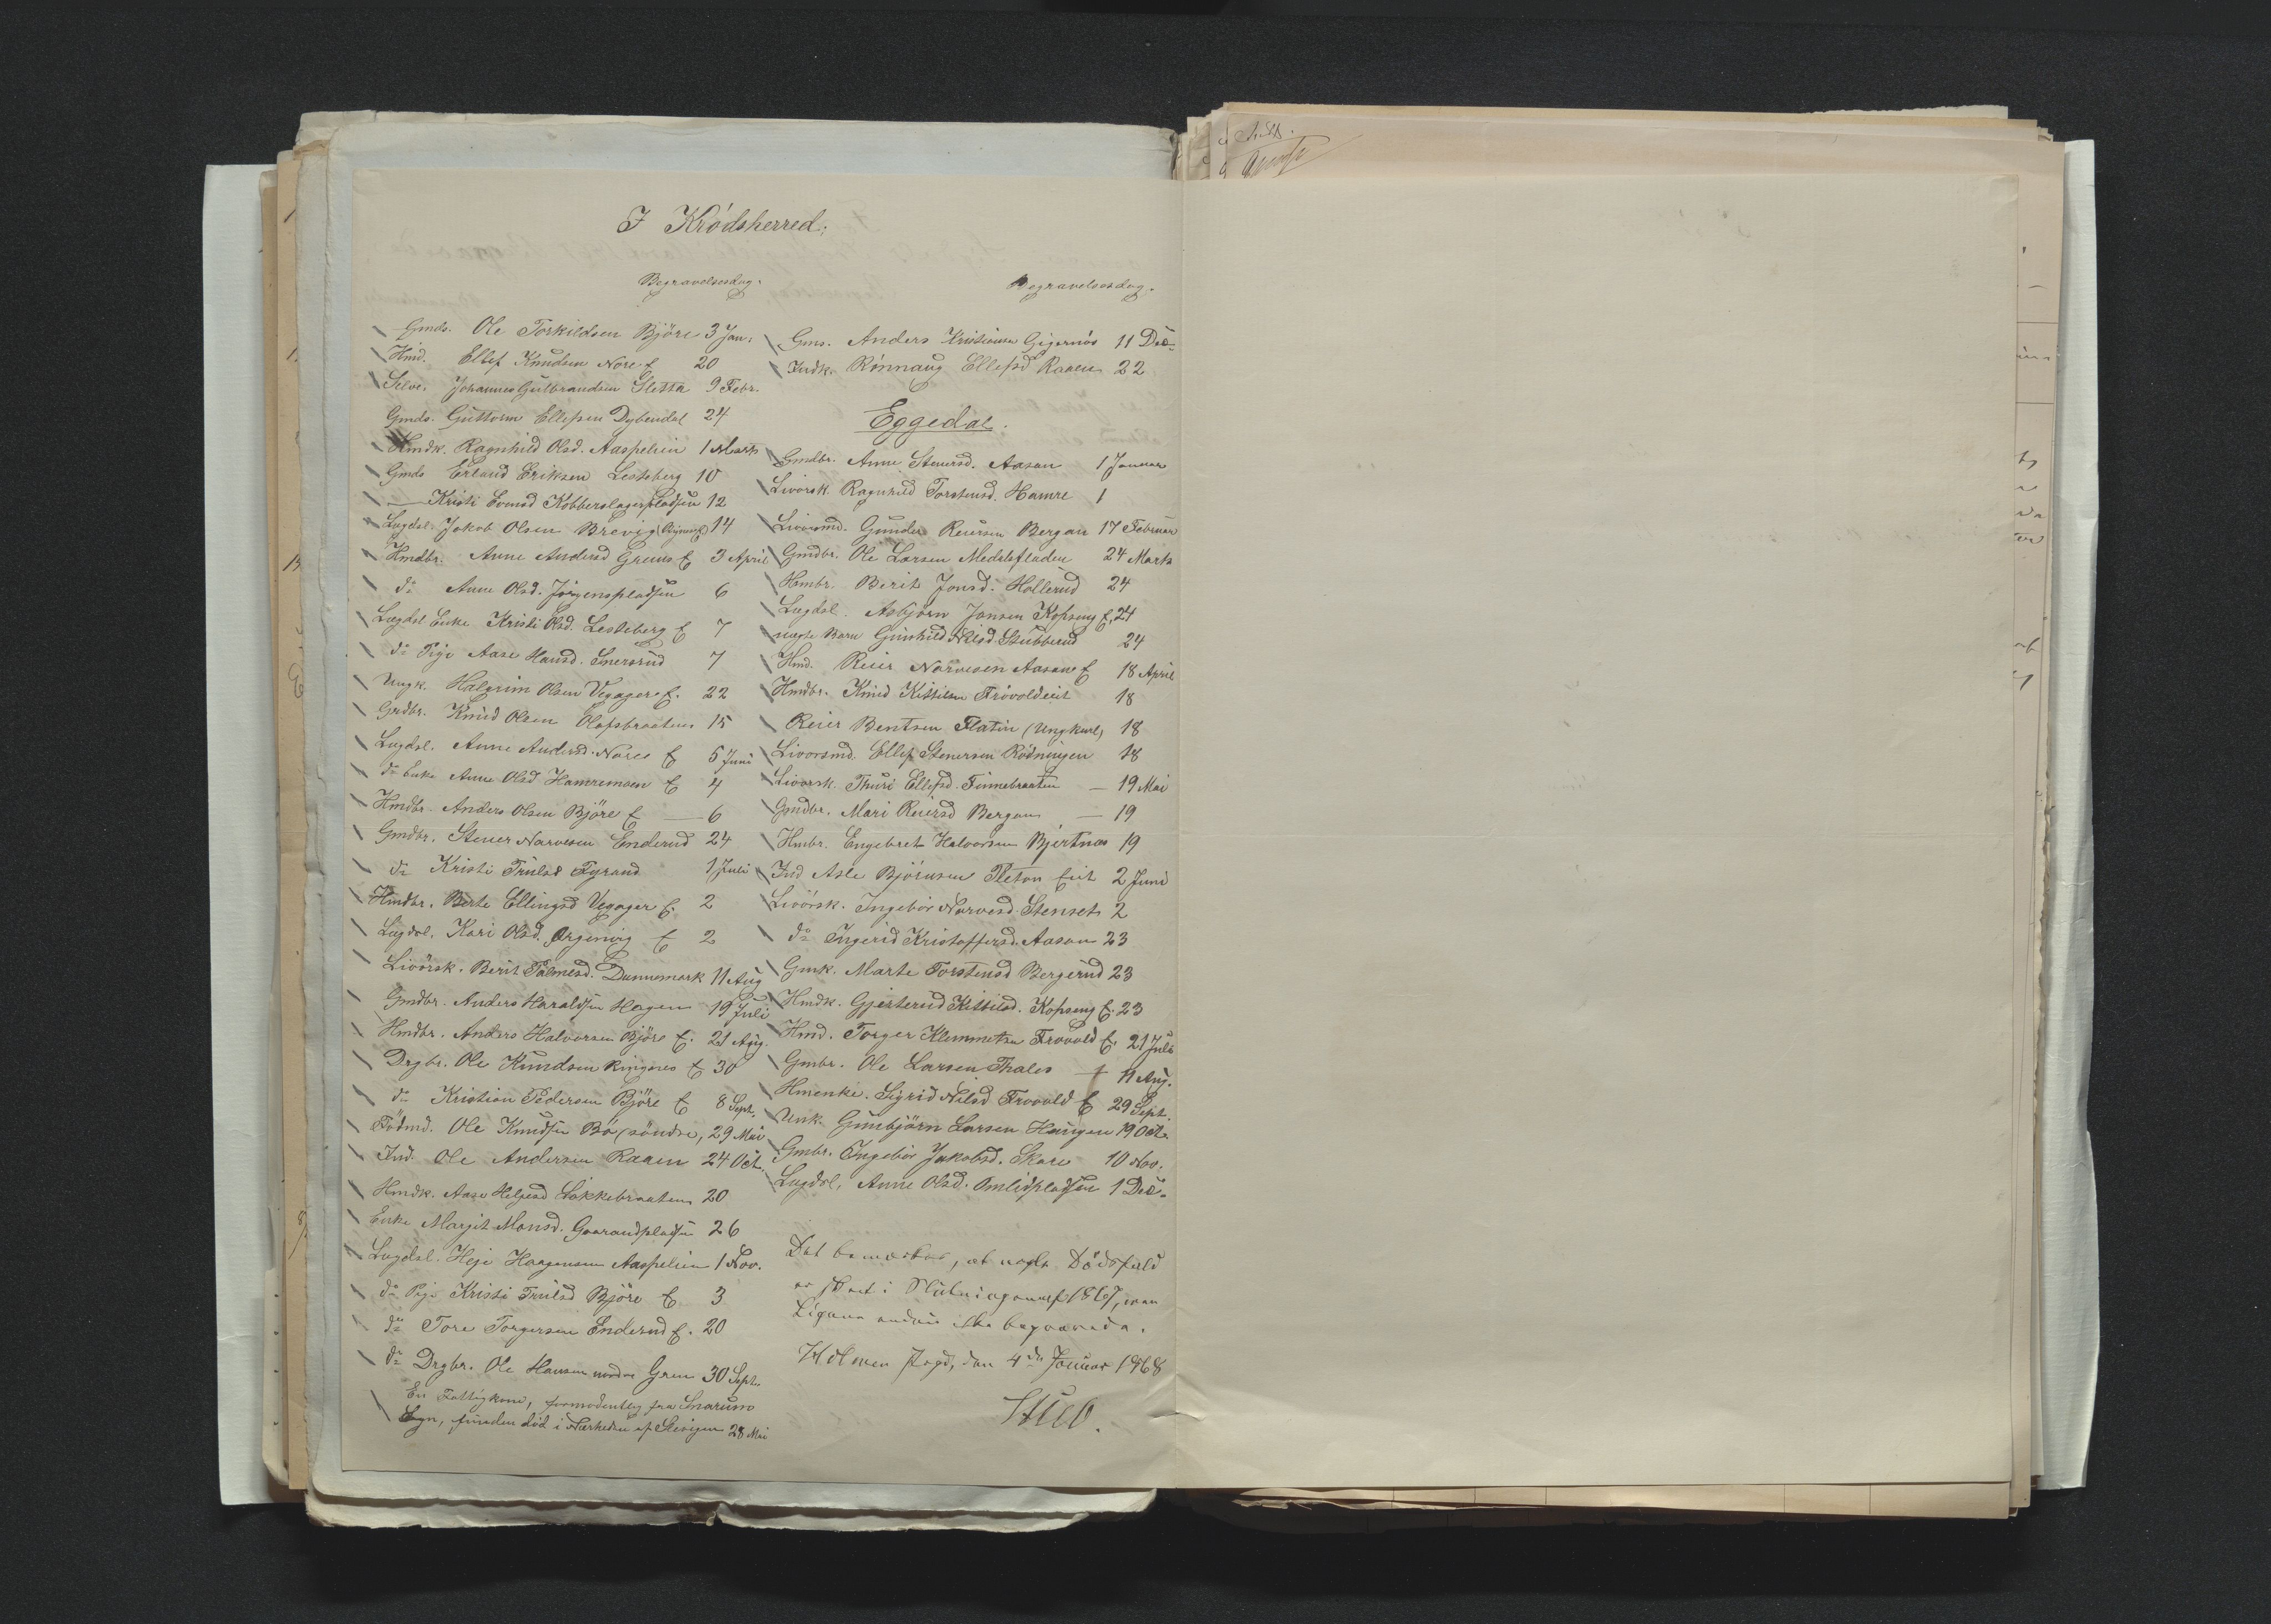 I Krödsherred;
Begravelsesdag.
Gmds. Ole Torkildsen Björe 3 Jan.
Hmd. Ellef Knudsen Nore E 20
Selve. Johannes Gulbrandsen Sletta 9 Febr.
Gmds. Guttorm Ellefsen Dybendal 24
Hmdk. Ragnhild Olsd. Aaspelien 1 Marts
Gmds Erland Eriksen Lesteberg 10
— Kristi Svensd Kobberslagerpladsen 12
Lægdsl. Jakob Olsen Brevig 14
Hmdbr. Anne Andersd Grens E 3 April
do Anne Olsd. Jörgenspladsen 6
Lægdsl Enke Kristi Olsd. Lesteberg E 7
do Pige Aase Hansd. Snersrud 7
Ungk. Halgrim Olsen Vegager E. 22
Grdbr. Knud Olsen Olafsbraaten 15
Lægdsl. Anne Andersd. Nores E 5 Juni
do Enke Anne Olsd Hamremoen E 4
Hmdbr. Anders Olsen Björe E — 6
Gmdbr. Stener Narvesen Enderud 24
do Kristi Trulsd Fyrand 1 Juli
Hmdbr. Berte Ellingsd Vegager E. 2
Lægdsl. Kari Olsd. Ørgenvig E 2
Livörsk. Berit Palmesd. Dannemark 11 Aug
Gmdbr. Anders Haraldsen Hagen 19 Juli
Hmdbr. Anders Halvorsen Björe E. 21 Aug.
Drgbr. Ole Knudsen Ringnes E 30
do Kristian Pedersen Björe E 8 Sept.
Födmd. Ole Knudsen Bö (söndre) 29 Mai
Ind. Ole Andersen Raaen 24 Oct.
Hmdk. Aase Helgesd Lökkebraaten 20
Enke Margit Monsd. Gaarandpladsen 26
Lægdsl. Heje Haagensen Aaspelien 1 Nov.
do Pige Kristi Trulsd Björe E 3
do Tore Torgersen Enderud E. 20
do Drgbr. Ole Hansen nordre Gren 30 Sept.
En Fattigkone, formodentlig fra Snarums
Sogn, funden död i Nærheden af 28 Mai
Begravelsesdag.
Gms. Anders Kristiansen Gigernös 11 Dec.
Indk. Rönnaug Ellefsd Raaen 22
Eggedal.
Gmdbr. Anne Stenersd. Aasan 1 Januar
Livörsk. Ragnhild Torstensd. Hamre 1
Livörsmd. Gunder Reiersen Bergan 17 Februar
Gmdbr. Ole Larsen Medalsflaaden 24 Marts
Hmbr. Berit Jonsd. Hollerud 24
Lægdsl. Asbjörn Jonsen Kopseng E. 24
uægte Barn Gunhild Nilsd Stubberud 24
Hmd. Reier Narvesen Aasan E 18 April
Hmdbr. Knud Kittilsen Frövoldeiet 18
Reier Bentsen Flatin (Ungkarl) 18
Livörsmd. Ellef Stenersen Rödningen 18
Livörsk. Thuri Ellefsd. Finnebraaten — 19 Mai
Gmdbr. Mari Reiersd Bergan — 19
Hmbr. Engebret Halvorsen Bjertnæs 19
Ind Asle Björnsen Teton Eiet 2 Juni
Livörsk. Ingebör Narvesd. Stenset 2
do Ingerid Kristoffersd. Aasan 23
Gmk. Marte Torstensd Bergerud 23
Hmdk. Gjesterud Kittilsd. Kopseng E. 23
Hmd. Torger Klemmetsen Frövold E. 21 Juli
Gmbr. Ole Larsen Thales — 11 Aug.
Hmenke. Sigrid Nilsd Frövold E 29 Sept.
Unk. Gunbjörn Larsen Haugen 19 Oct.
Gmbr. Ingebör Jakobsd. Skare 10 Nov.
Lægdsl. Anne Olsd. Omlidpladsen 1 Dec.
Det bemærkes, at nogle Dödsfald
er skeet i Slutningen af 1867, men
Ligene endnu ikke begravede.
Holmen Pgd, den 4de Januar 1868
Stub.